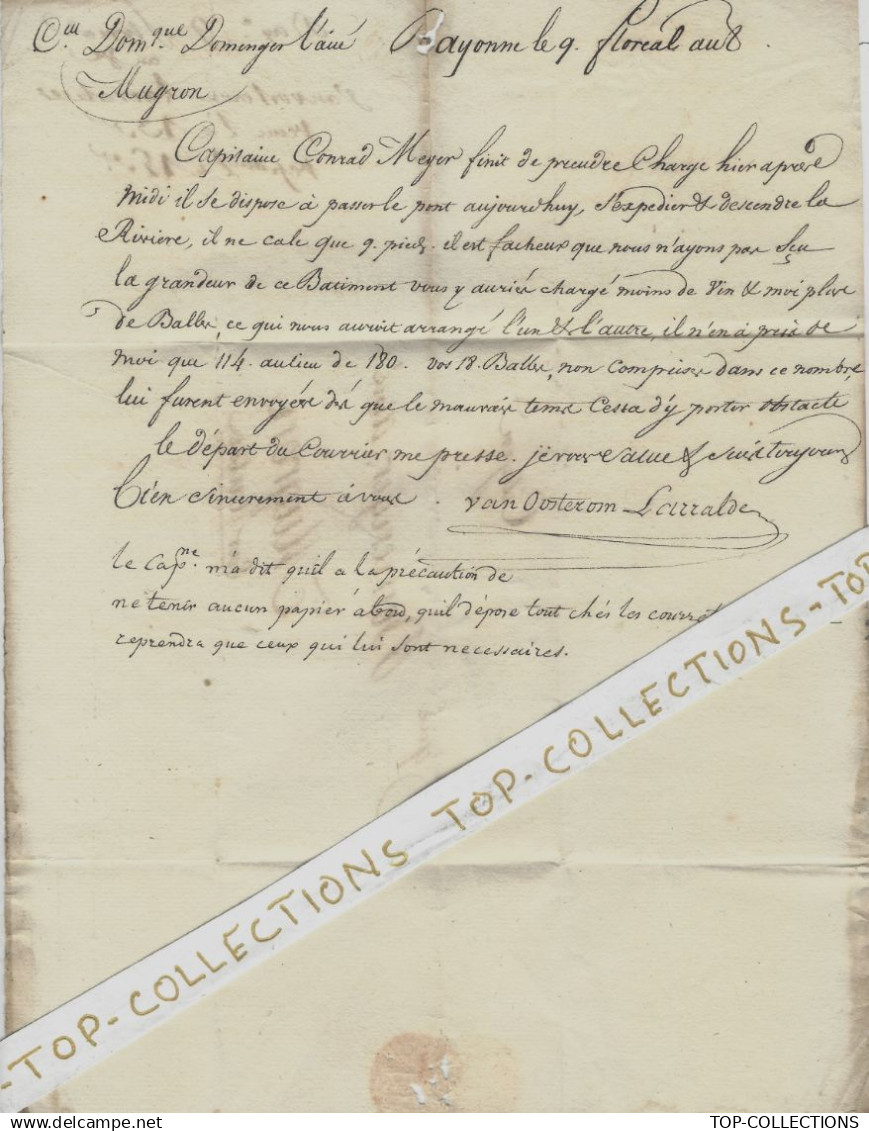 C.en Dom.que Domenger l'ainé Bayonne le 9. floreal an 8.
Mugron
Capitaine Conrad Meyer finit de prendre Charge hier après
midi il se dispose à passer le pont aujourd'huy, s'expedier & descendre la
Riviere, il ne cale que 9. pieds. il est facheux que nous n'ayons pas sçu
la grandeur de ce Batiment vous y auriés chargé moins de Vin & moi plus
de Balles, ce qui nous auroit arrangé l'un & l'autre, il n'en à pris de
moi que 114. au lieu de 180. vos 18. Balles, non comprises dans ce nombre,
lui furent envoyées dés que le mauvais tems Cessa d'y porter obstacle
le départ du Courrier me presse. je vous salue & suis toujours
bien sincerement à vous. van Oosterom Larralde
le cap.ne m'a dit qu'il a la précaution de
ne tenir aucun papier à bord, qu'il dépose tout chés les
reprendra que ceux qui lui sont necessaires.
TOP-COLLECTIONS TOP-COLLECTIONS TOP-COLLECTIONS-TOP
TOP-COLLECTIONS